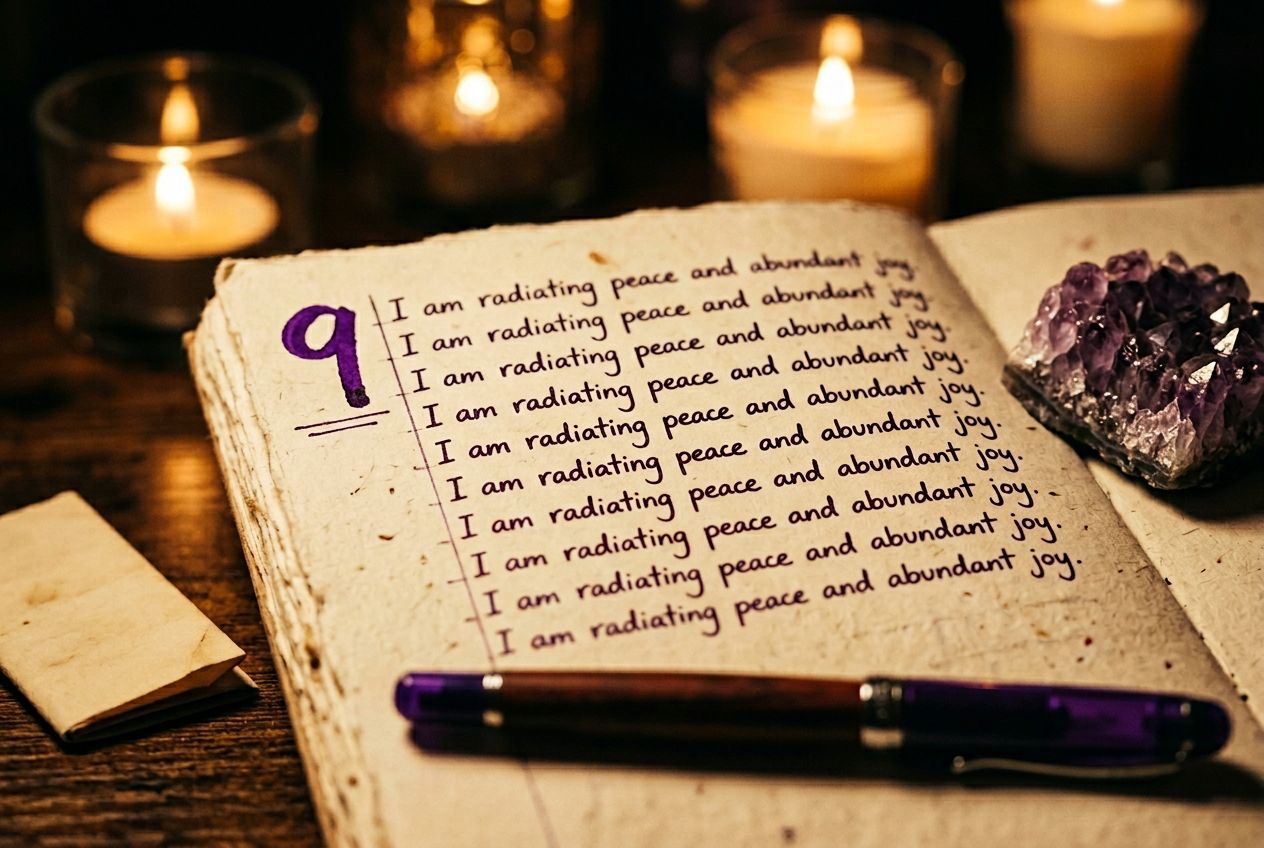 9
I am radiating peace and abundant joy.
I am radiating peace and abundant joy.
I am radiating peace and abundant joy.
I am radiating peace and abundant joy.
I am radiating peace and abundant joy.
I am radiating peace and abundant joy.
I am radiating peace and abundant joy.
I am radiating peace and abundant joy.
I am radiating peace and abundant joy.
I am radiating peace and abundant joy.